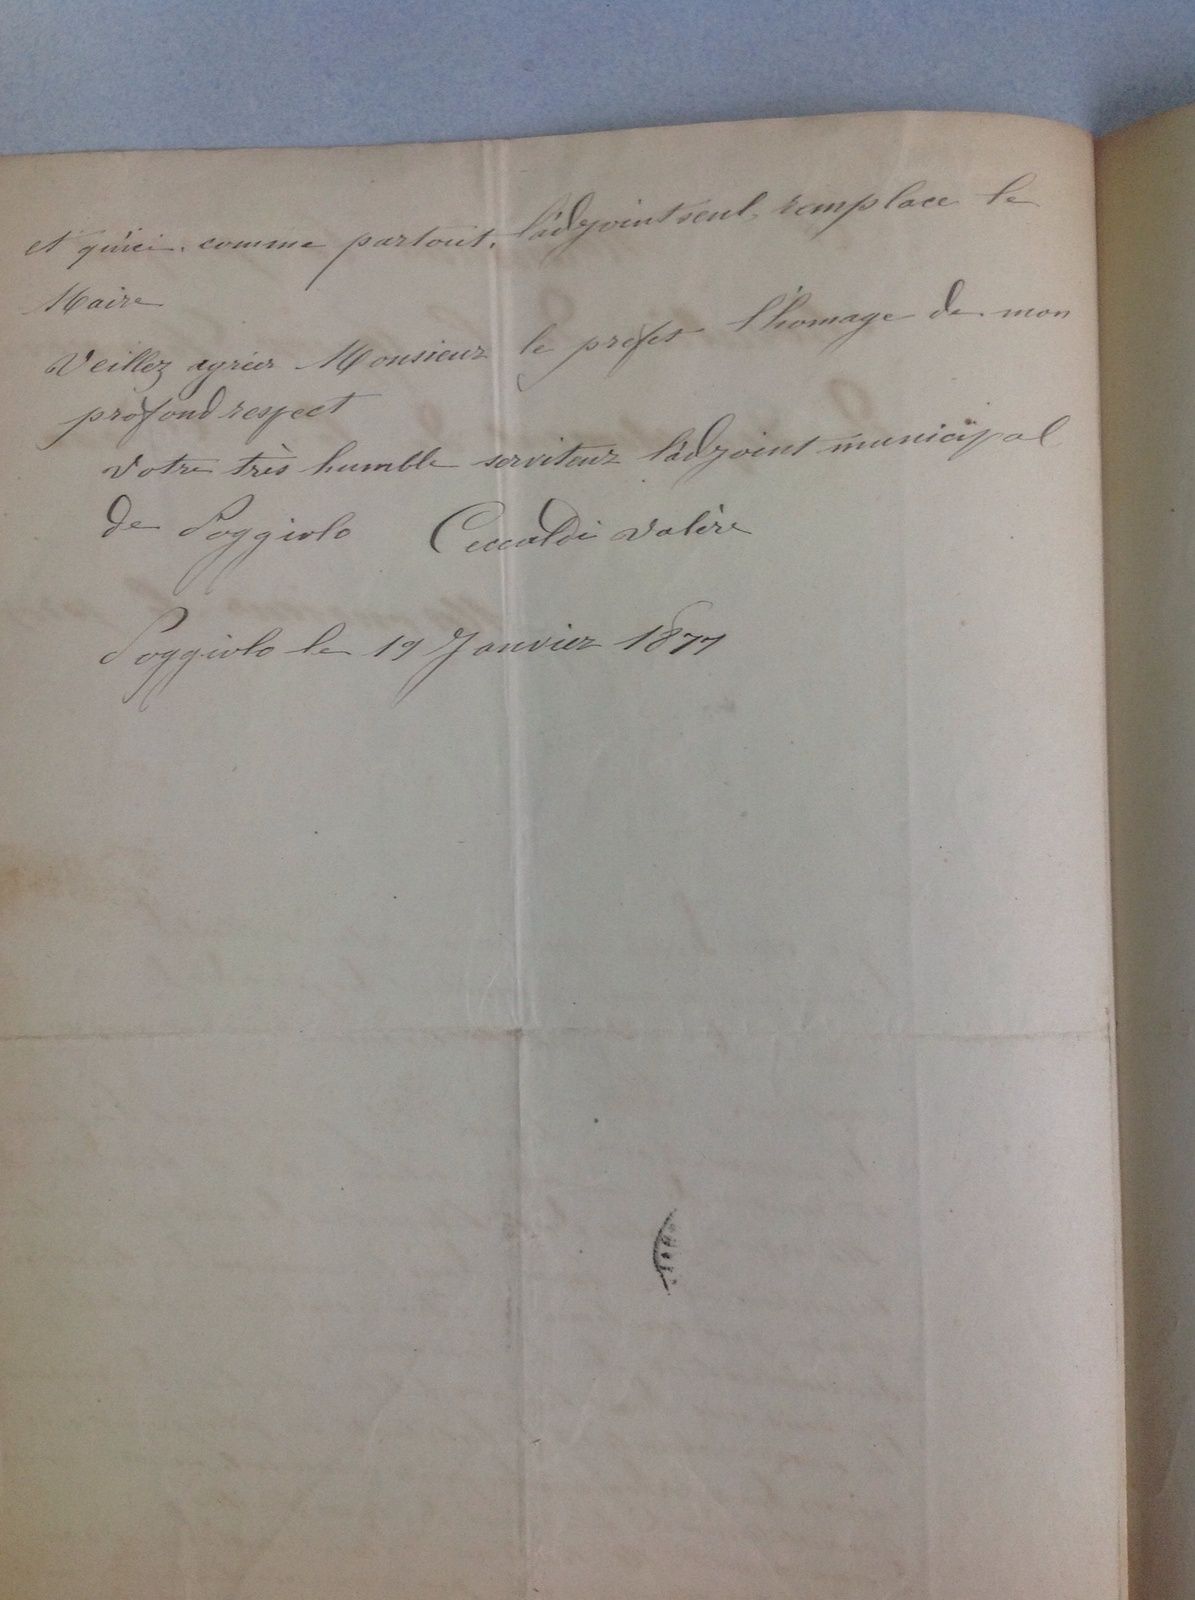 et qu'ici, comme partout, l'adjoint seul, remplace le
Maire
Veillez agréer Monsieur le préfet l'homage de mon
profond respect
votre très humble serviteur l'adjoint municipal
de Poggiolo Ceccaldi Valère
Poggiolo le 19 Janvier 1877